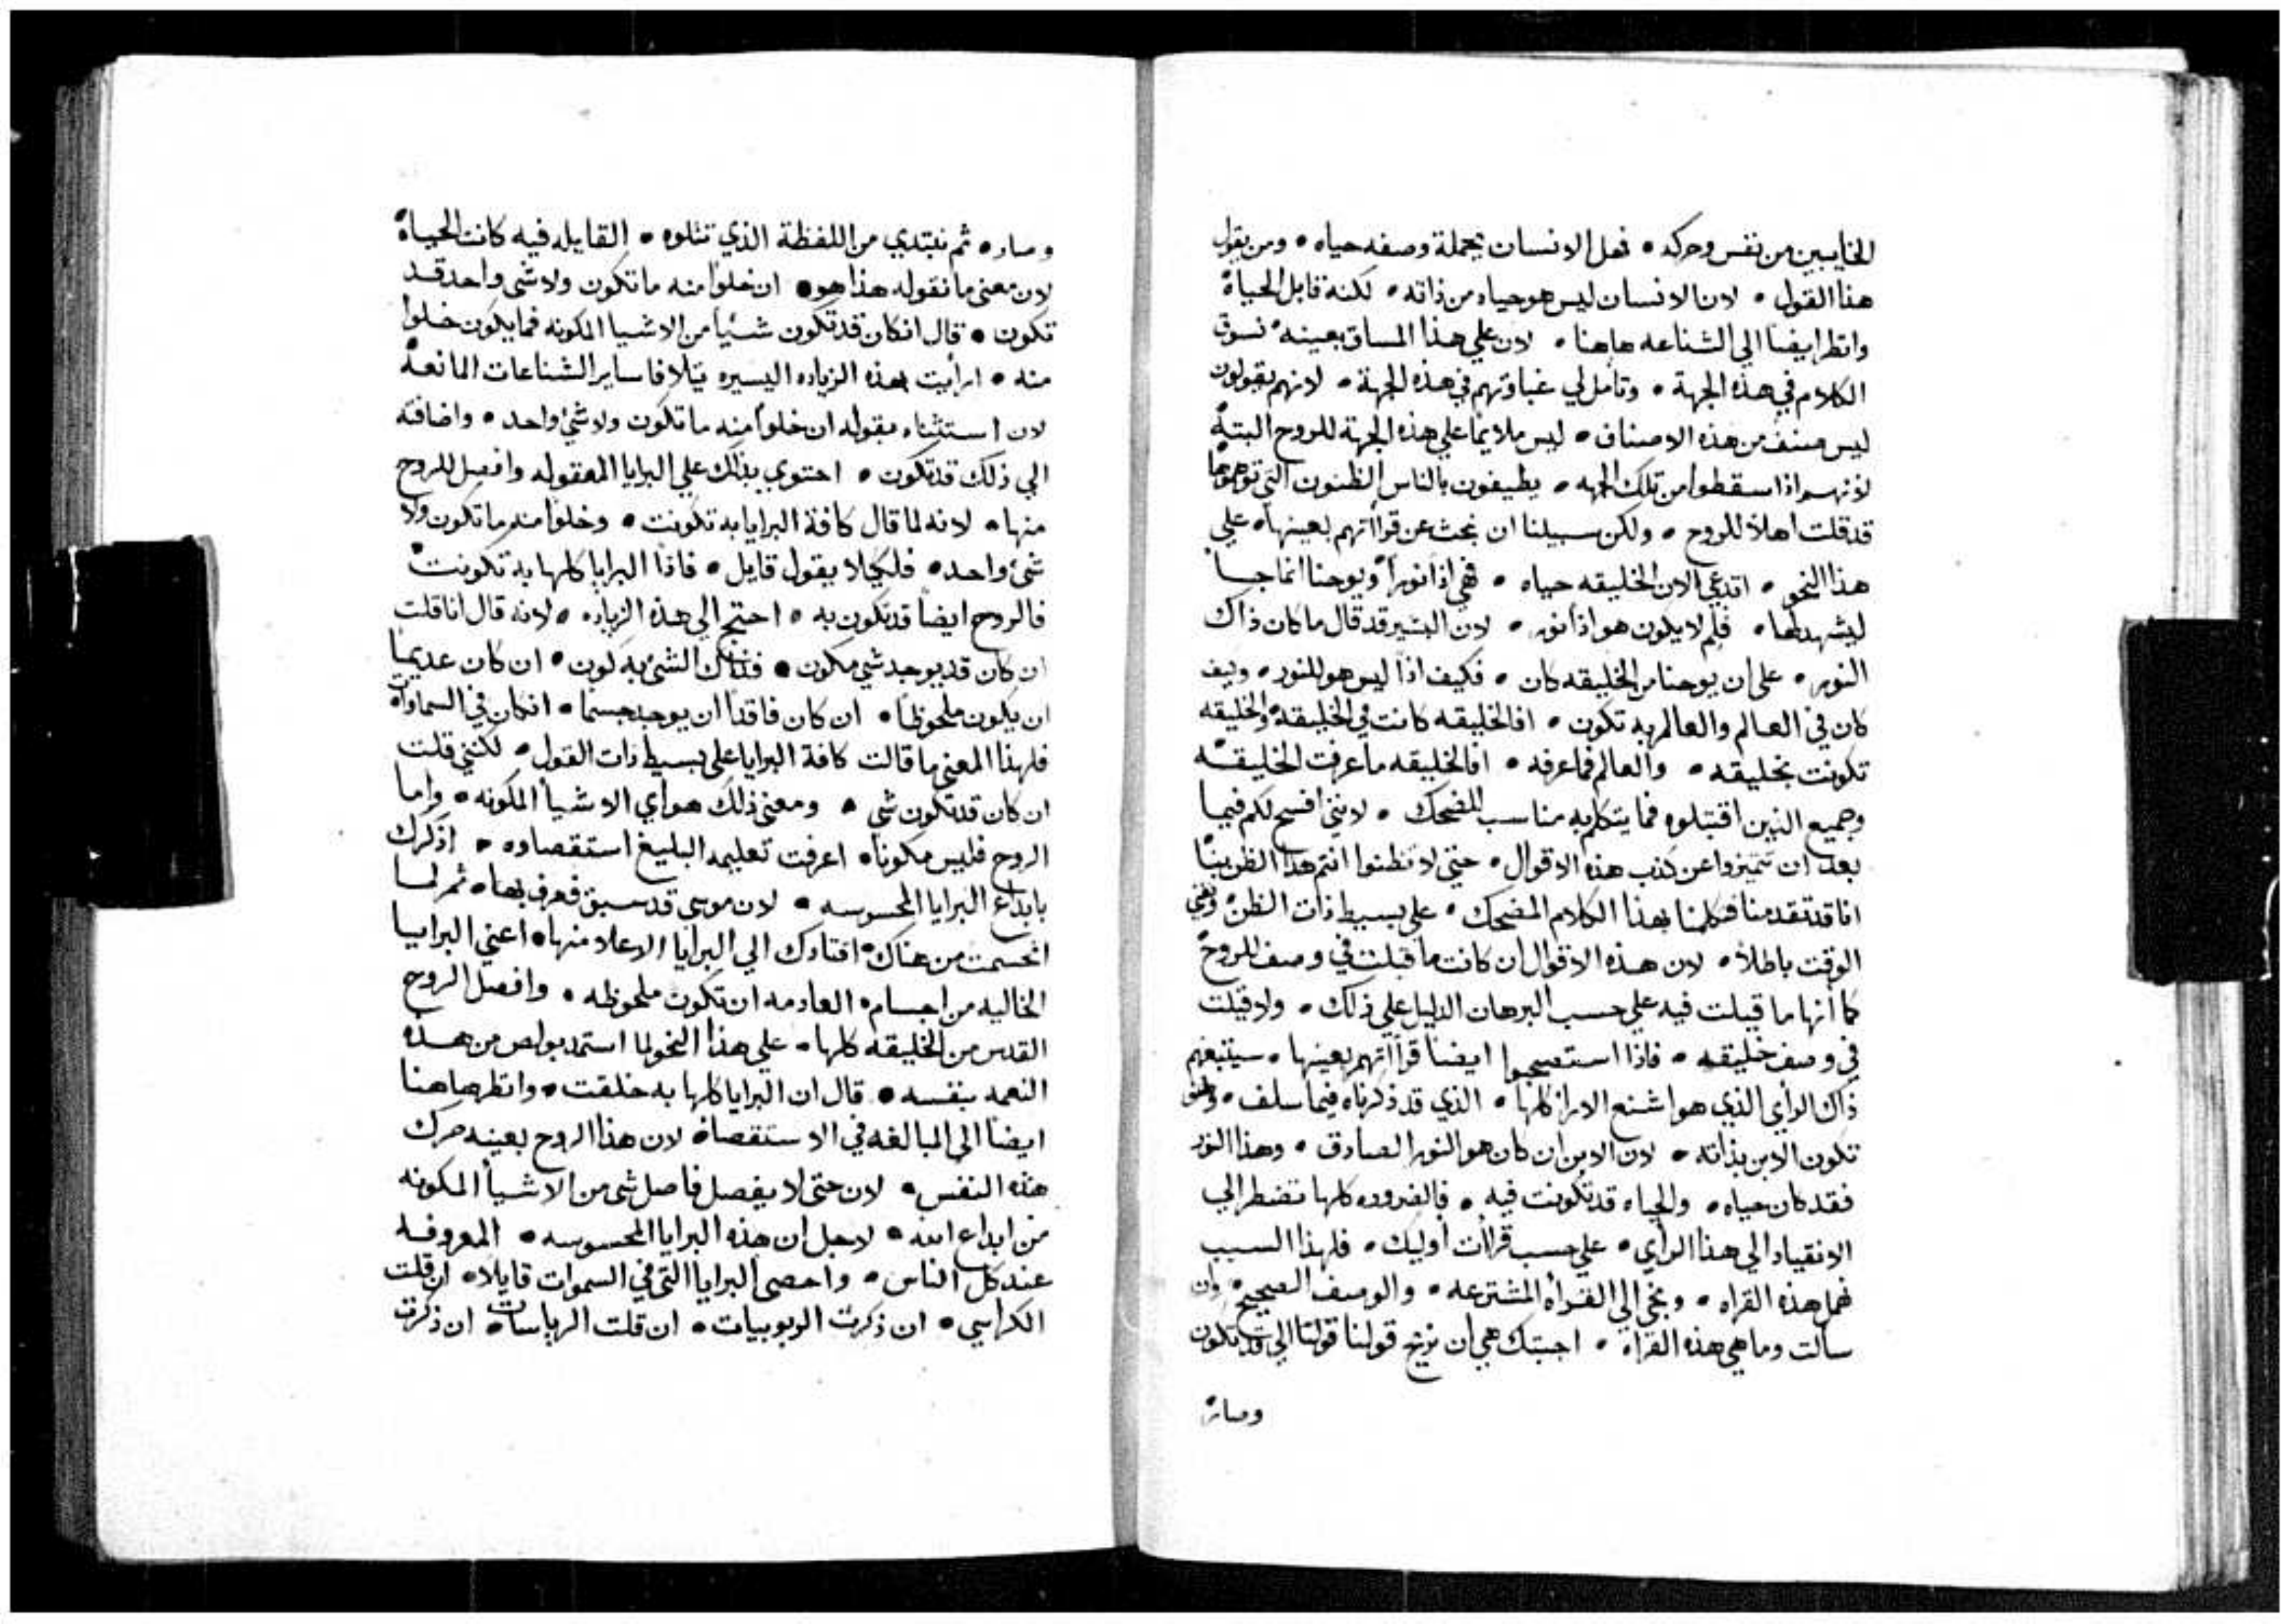 الخايبين من نفس وحركه • فعل الانسان بجملة وصفه حياه • ومن يقول
هذا القول • لان الانسان ليس هو حياه من ذاته • لكنه قابل الحياة
وانظر ايضا الي الشناعه هاهنا • لان علي هذا المساق بعينه نسوق
الكلام في هذه الجهة • وتامل لي غباوتهم في هذه الجهة • لانهم يقولون
ليس صنف من هذه الاصناف • ليس ملايما علي هذه الجهة للروح البتة
لانهم اذا سقطوا من تلك الجهه • يطيفون بالناس الظنون التي توهموها
قد قلت اهلا للروح • ولكن سبيلنا ان نبحث عن قراأتهم بعينها • علي
هذا النحو • اتدعي الان الخليقه حياه • فهي اذا نورا ويوحنا انما جا
ليشهد لها • فلم لا يكون هو اذا نور • لان البشير قد قال ما كان ذاك
النور • علي ان يوحنا من الخليقه كان • فكيف اذا ليس هو للنور • وكيف
كان في العالم والعالم به تكون • افالخليقه كانت في الخليقه والخليقه
تكونت بخليقه • والعالم فما عرفه • افالخليقه ما عرفت الخليقه
وجميع الذين اقتبلوه فما يتكلم به مناسب للضحك • لانني افسح لكم فيما
بعد ان تتميزوا عن كذب هذه الاقوال • حتي لا تظنوا انتم هذا الظن بينا
انا قد تقدمنا فتكلمنا بهذا الكلام المضحك • علي بسيط ذات الظن ونفني
الوقت باطلا • لان هذه الاقوال ان كانت ما قبلت في وصف الروح
كما أنها ما قيلت فيه علي حسب البرهان الدليل علي ذلك • ولا قيلت
في وصف خليقه • فاذا استصحبوا ايضا قراأتهم بعينها • سيتبعهم
ذاك الراي الذي هو اشنع الارا كلها • الذي قد ذكرناه فيما سلف • وهو
تكون الابن بذاته • لان الابن ان كان هو النور الصادق • وهذا النور
فقد كان حياه • والحياه قد تكونت فيه • فالضروره كلها تضطر الي
الانقياد الي هذا الراي • علي حسب قراات أوليك • فلهذا السبب
نهمل هذه القراه • ونجي الي القراة المشترعه • والوصف الصحيح • وان
سالت وما هي هذه القراه • اجبتك هي ان نزيح قولنا قولنا الي قد تكون
وصار

وصار • ثم نبتدي من اللفظة الذي تتلوه • القايله فيه كانت الحياة
لان معني ما نقوله هذا هو • ان خلوا منه ما تكون ولا شي واحد قد
تكون • قال ان كان قد تكون شئيا من الاشيا المكونه فما يكون خلوا
منه • ارأيت بهذه الزياده اليسيره يتلافا ساير الشناعات المانعة
لان استثناه بقوله ان خلوا منه ما تكون ولا شئ واحد • واضافته
الي ذلك قد تكون • احتوي بذلك علي البرايا المعقوله وافصل للروح
منها • لانه لما قال كافة البرايا به تكونت • وخلوا منه ما تكون ولا
شئ واحد • فلكيلا يقول قايل • فاذا البرايا كلها به تكونت
فالروح ايضا قد تكون به • احتج الي هذه الزياده • لانه قال انا قلت
ان كان قد يوجد شي مكون • فذاك الشئ به كون • ان كان عديما
ان يكون ملحوظا • ان كان فاقدا ان يوجد جسما • ان كان في السماواه
فلهذا المعني ما قالت كافة البرايا علي بسيط ذات القول • لكنني قلت
ان كان قد تكون شي • ومعني ذلك هو أي الاشيأ المكونه • واما
الروح فليس مكونا • اعرفت تعليمه البليغ استقصاوه • اذكرك
بابداع البرايا المحسوسه • لان موسي قد سبق فعرف بها • ثم لما
انحسمت من هناك اقتادك الي البرايا الاعلا منها • اعني البرايا
الخاليه من اجسام • العادمه ان تكون ملحوظه • وافصل الروح
القدس من الخليقه كلها • علي هذا النحو لما استمد بولص من هذه
النعمه بنفسه • قال ان البرايا كلها به خلقت • وانظر هاهنا
ايضا الي المبالغه في الاستقصاة لان هذا الروح بعينه حرك
هذه النفس • لان حتي لا يفصل فاصل شي من الاشيأ المكونه
من ابداع الله • لاجل ان هذه البرايا المحسوسه • المعروفه
عند كل الناس • واحصي البرايا التي في السموات قايلا • ان قلت
الكراسي • ان ذكرت الربوبيات • ان قلت الرياسات • ان ذكرت